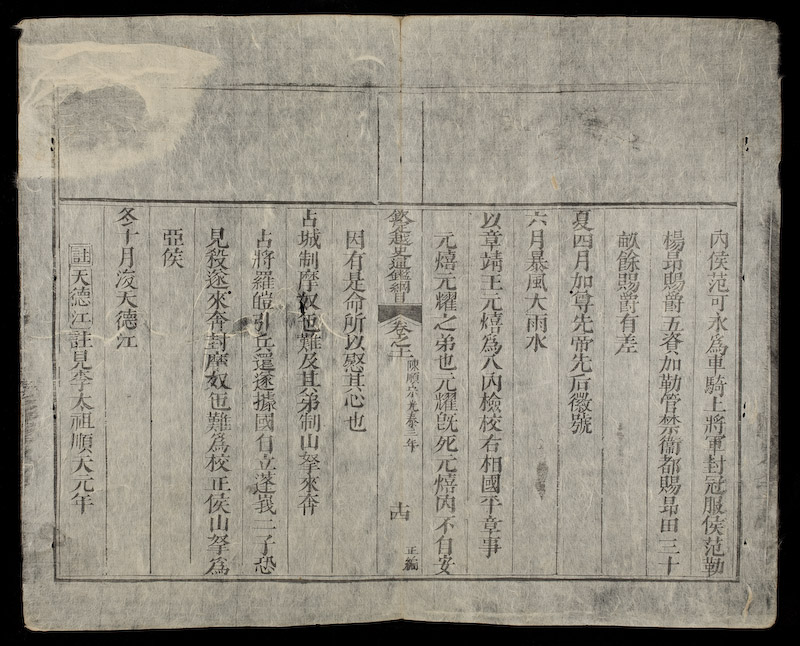 內侯范可永爲車騎上將軍封冠服侯范勒
楊昂賜爵五資加勒管禁衞都賜昂田三十
畝餘賜爵有差
夏四月加尊先帝先后徽號
六月暴風大雨水
以章靖王元熺爲入內檢校右相國平章事
元熺元耀之弟也元耀旣死元熺內不自安
欽定越史通鑑綱目
卷之十一
陳順宗光泰三年
十四
正編
因有是命所以慰其心也
占城制摩奴㐌難及其弟制山拏來奔
占將羅皚引兵還遂據國自立蓬峩二子恐
見殺遂來奔封摩奴㐌難爲校正侯山拏爲
亞侯
冬十月浚天德江
註天德江註見李太祖順天元年